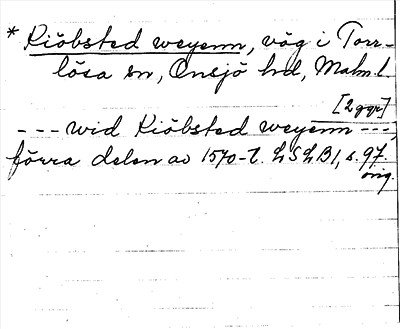 * Kiöbsted weyenn, väg i Torr-
lösa sn, Onsjö hd, Malm. l.
[2 ggr]
--- wid Kiöbsted weyenn ---,
förra delen av 1570-t. LSLB1, s. 97.
orig.